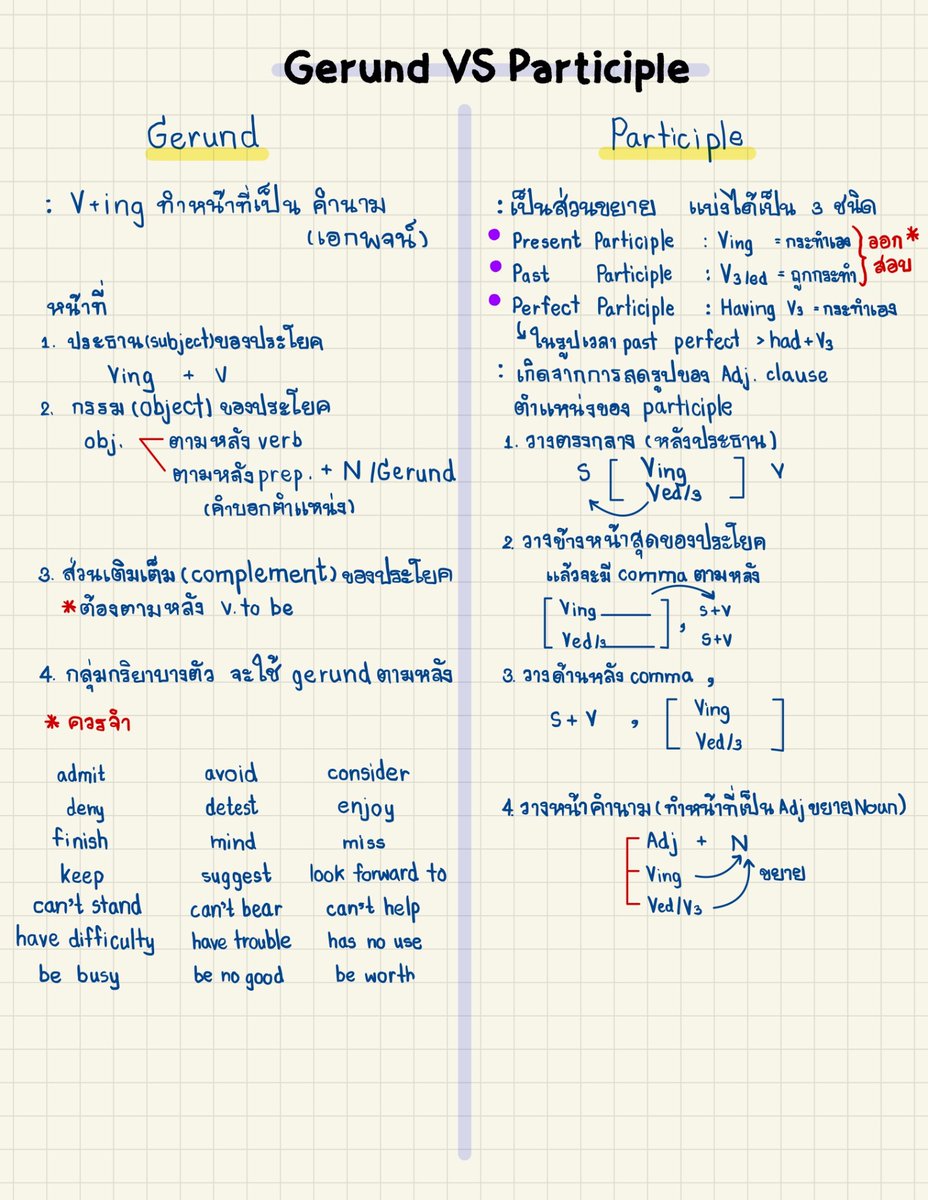 Gerund VS Participle
Gerund
: V+ing ทำหน้าที่เป็น คำนาม
(เอกพจน์)
หน้าที่
1. ประธาน(subject)ของประโยค
Ving + V
2. กรรม (object) ของประโยค
obj. ตามหลัง verb
ตามหลัง prep. + N /Gerund
(คำบอกตำแหน่ง)
3. ส่วนเติมเต็ม (complement) ของประโยค
*ต้องตามหลัง v. to be
4. กลุ่มกริยาบางตัว จะใช้ gerund ตามหลัง
* ควรจำ
admit avoid consider
deny detest enjoy
finish mind miss
keep suggest look forward to
can't stand can't bear can't help
have difficulty have trouble has no use
be busy be no good be worth
Participle
: เป็นส่วนขยาย แบ่งได้เป็น 3 ชนิด
• Present Participle : Ving = กระทำเอง
• Past Participle : V3/ed = ถูกกระทำ
ออก*
สอบ
• Perfect Participle : Having V3 = กระทำเอง
↳ ในรูปเวลา past perfect > had+V3
: เกิดจากการลดรูปของ Adj. clause
ตำแหน่งของ participle
1. วางตรงกลาง (หลังประธาน)
S [ Ving ] V
Ved/3
2. วางข้างหน้าสุดของประโยค
แล้วจะมี comma ตามหลัง
[ Ving ____ ] , S+V
Ved/3____ S+V
3. วางด้านหลัง comma ,
S + V , [ Ving ]
Ved/3
4. วางหน้าคำนาม (ทำหน้าที่เป็น Adj ขยาย Noun)
Adj + N
Ving ขยาย
Ved/V3